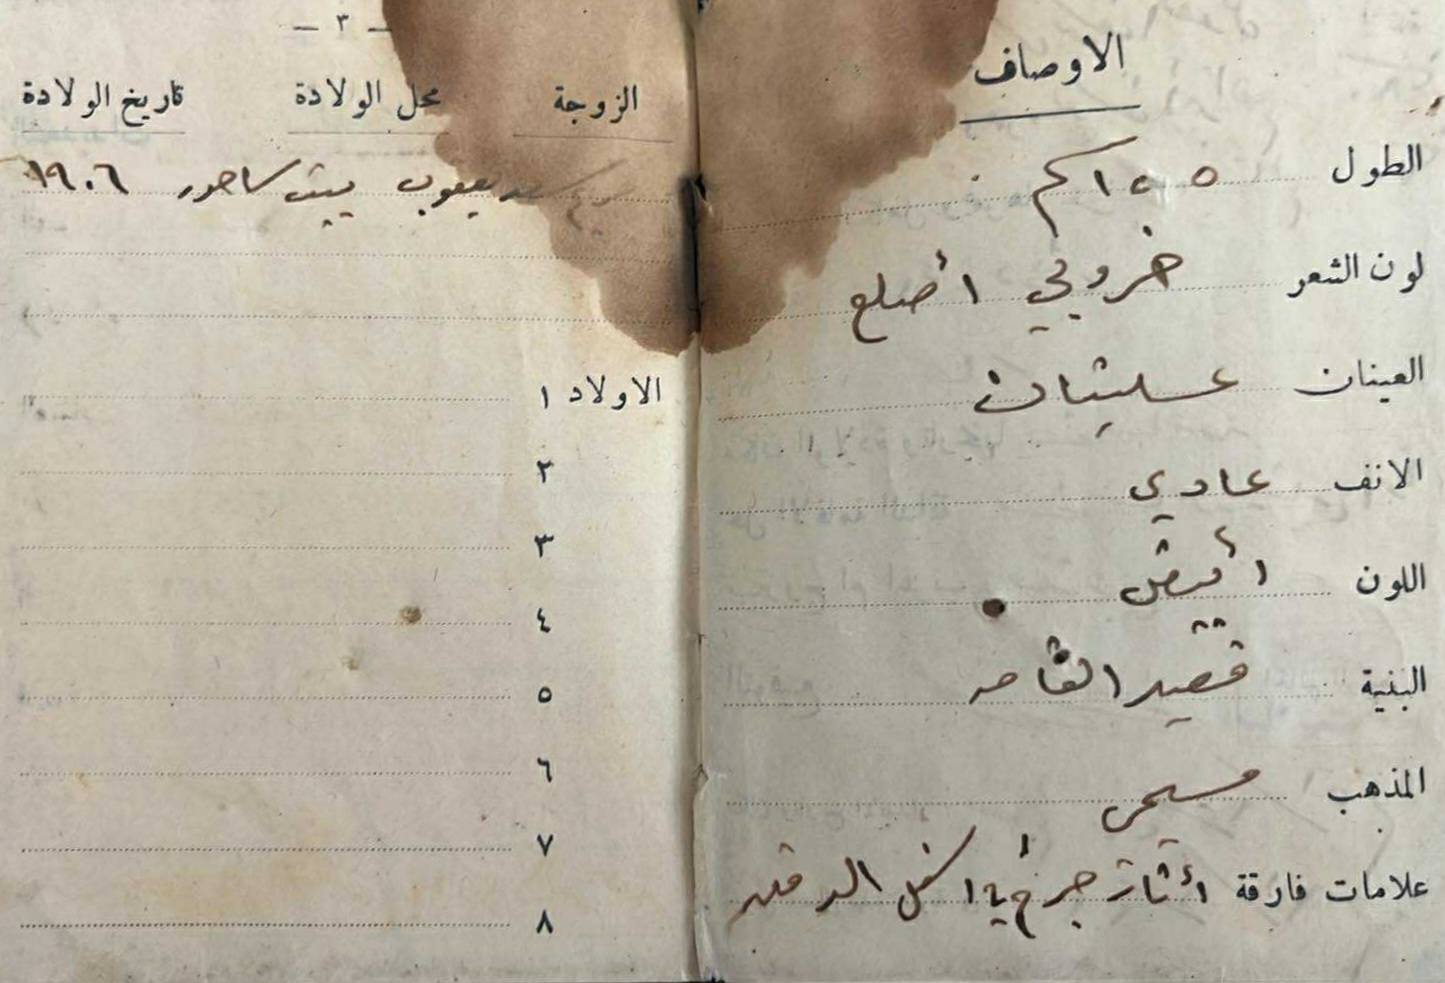 الاوصاف
الطول
لون الشعر خروبي اصلع
العينان عسليتان
الانف عادي
اللون أبيض
البنية قصير القامه
المذهب مسيحي
علامات فارقة أثار جرح في اسفل الدقن
— ٣ —
الزوجة محل الولادة تاريخ الولادة
يعقوب بيت ساحور ١٩٠٦
الاولاد ١
٢
٣
٤
٥
٦
٧
٨